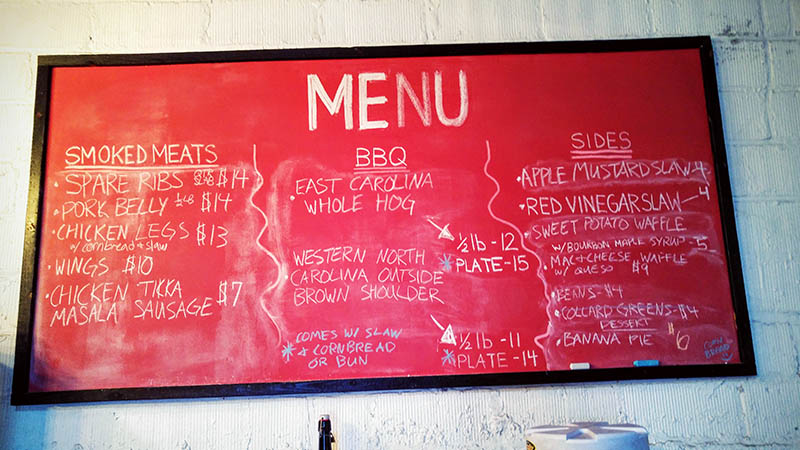 MENU
SMOKED MEATS
• SPARE RIBS $14
• PORK BELLY 1/2LB $14
• CHICKEN LEGS $13
w/ cornbread & slaw
• WINGS $10
• CHICKEN TIKKA
MASALA SAUSAGE $7
BBQ
• EAST CAROLINA
WHOLE HOG
½ lb - 12
* PLATE - 15
• WESTERN NORTH
CAROLINA OUTSIDE
BROWN SHOULDER
½ lb - 11
* PLATE - 14
* COMES W/ SLAW
& CORNBREAD
OR BUN
SIDES
• APPLE MUSTARD SLAW 4
• RED VINEGAR SLAW - 4
• SWEET POTATO WAFFLE
W/BOURBON MAPLE SYRUP - 5
• MAC+CHEESE WAFFLE
W/ QUESO $9
• BEANS - $4
• COLLARD GREENS - $4
DESSERT
• BANANA PIE $6
CORN
BREAD